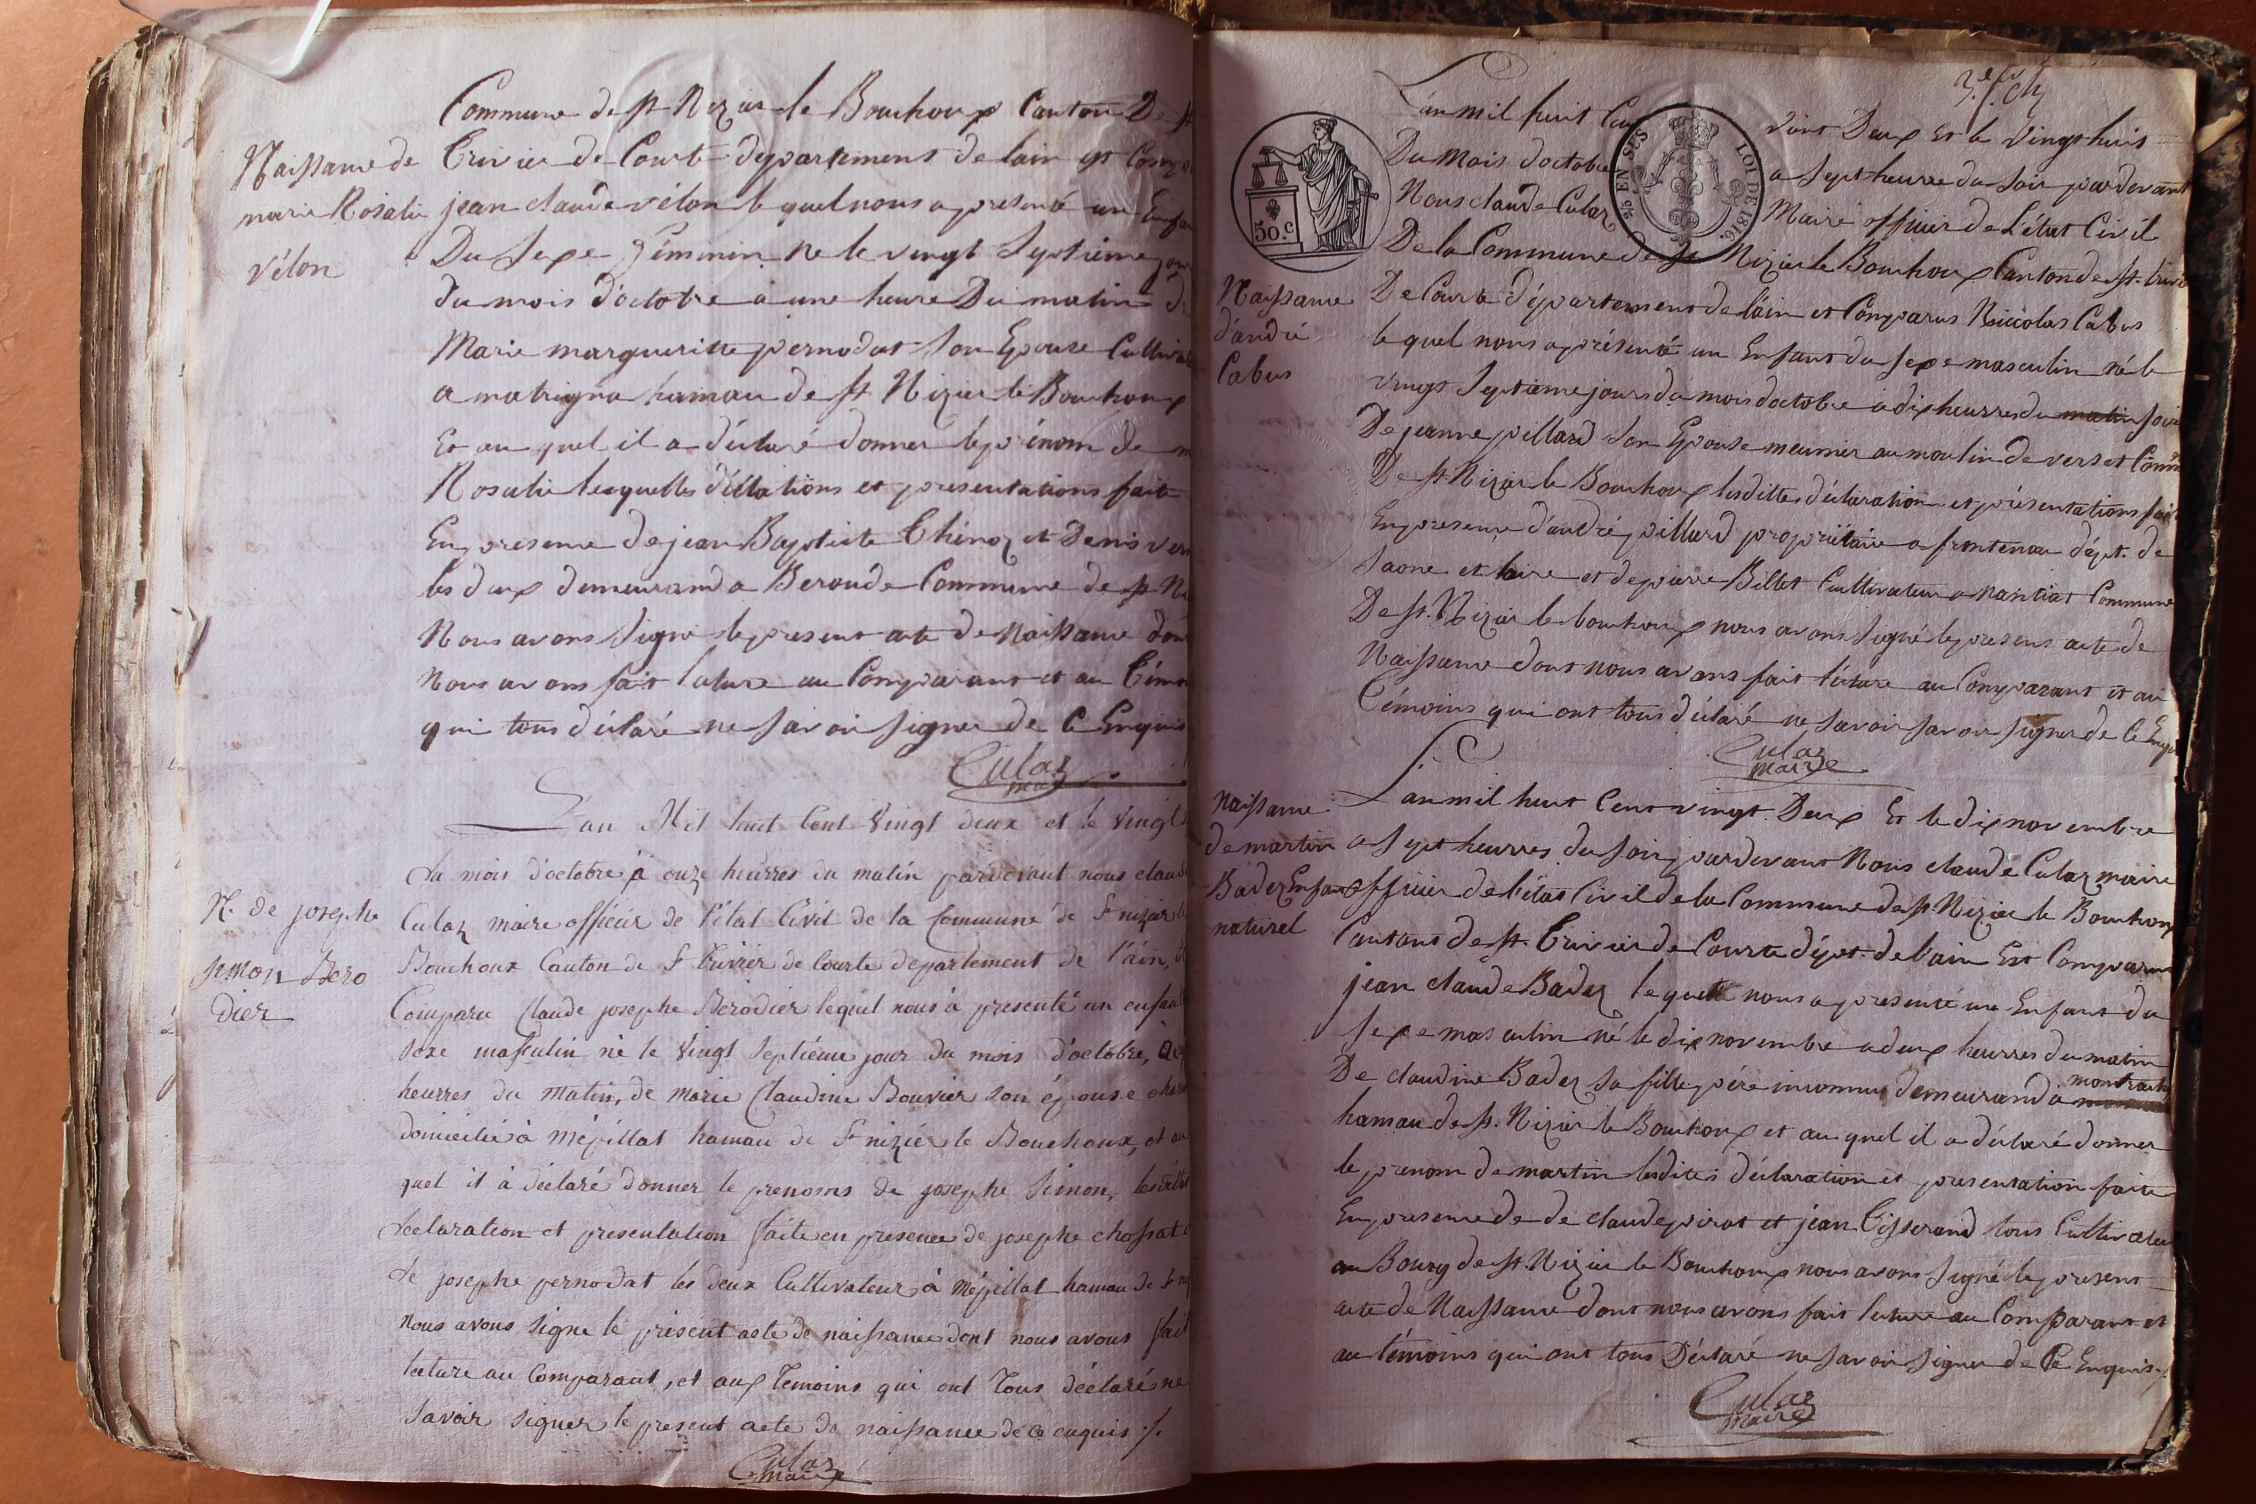 Commune de st Nizier le Bouhoux Canton De st
Naissance de
marie Rosalie
vélon
Trivier de Courte département de lain est Compa
jean claude vélon le quel nous a presenté un Enfan
Du Sexe Féminin Ne le vingt Septieme jour
du mois d'octobre a une heure Du matin de
Marie margueritte pernodat Son Epouse Cultiva
a matrigna hamau de st Nizier le Bouhoux
Et au quel il a déclaré donner le prénom de m
Rosalie lesquelles d'élations et presentations fait
En presence de jean Baptiste Thénoz et Denis ver
les deux demeurand a Beroude Commune de st Ni
Nous avons Signé le present acte de Naissance don
Nous avons fait lature au Comparant et au Témo
qui tous déclaré ne Savoir Signer de Ce Enquis
Culaz
maire
L'an Mil huit Cent Vingt deux et le Vingt
du mois d'octobre à onze heurres du matin pardevant nous claude
N. de josephe
simon Bero
dier
Culaz maire officier de l'état Civil de la Commune de St nizier le
Bouchoux Canton de St Trivier de Courte departement de l'ain,
Comparu Claude josephe Berodier lequel nous à presenté un enfant
sexe masculin né le Vingt Septiéme jour du mois d'octobre, à
heurres du Matin, de Marie Claudine Bouvier son épouse
domicilié à Mépillat hamau de St nizier le Bouchoux, et au
quel il à déclaré donner le prenoms de josephe Simon, lesditte
declaration et presentation faite en presence de josephe chossat e
de josephe pernodat les deux Cultivateur à Mépillat hamau de St ni
Nous avons Signe le present acte de naissance dont nous avons fait
lecture au Comparant, et aux Temoins qui ont Tous déclaré ne
Savoir signer le present acte de naissance de ce enquis ./.
Culaz
maire
3.e f. ch
L'an mil huit Cent vint Deux Et le vingt huit
Du Mois d'octobre a Sept heurre du Soir pardevant
Nous claude Culaz Maire officier de L'état Civil
¼ EN SUS
LOI DE 1816.
50.c
De la Commune de St Nizier le Bouhoux Canton de St. trivier
Naissance
d'andré
Cabus
De Courte département de l'ain et Comparus Niccolas Cabus
le quel nous a présenté un Enfant du Sexe masculin né le
vingt Septieme jours du mois doctobre a dix heurres du matin soir
De jeanne pillard Son Epouse meunier au moulin de verset Comm
De St Nizier le Bouhoux lesdittes déclaration et présentations fait
En presence d'andré pillard propriétaire a frontenau dépt. de
Saone et loire et de pierre Billet Cultivateur a Nantiat Commune
De St. Nizier le bouhoux nous avons Signé le present acte de
Naissance dont nous avons fait l'ature au Comparant et au
Témoins qui ont tous déclaré ne Savoir Savoir Signer de Ce Enqui
Culaz
maire
Naissance
de martin
Badez Enfant
naturel
L'an mil huit Cent vingt Deux Et le dix novembre
a Sept heurres du Soir pardevant Nous claude Culaz maire
officier de l'état Civil de la Commune de St Nizier le Bouhoux
Cantons de St. Trivier de Courte dépt. de lain Est Comparu
jean claude Badez le quel nous a presenté un Enfant du
Sexe masculin né le dix novembre a deux heurres du matin
De claudine Badez sa fille pére inconnu demeurand a
hamau de St. Nizier le Bouhoux et au quel il a déclaré donner
le prenom de martin lesdites déclaration et presentation faite
En presence de de claude pirat et jean Tisserand tous Cultivateu
au Bourg de St. Nizier le Bouhoux nous avons Signé le present
acte de Naissance dont nous avons fait lature au Comparant et
au témoins qui ont tous Déclaré ne Savoir Signer de Ce Enquis ./.
Culaz
maire